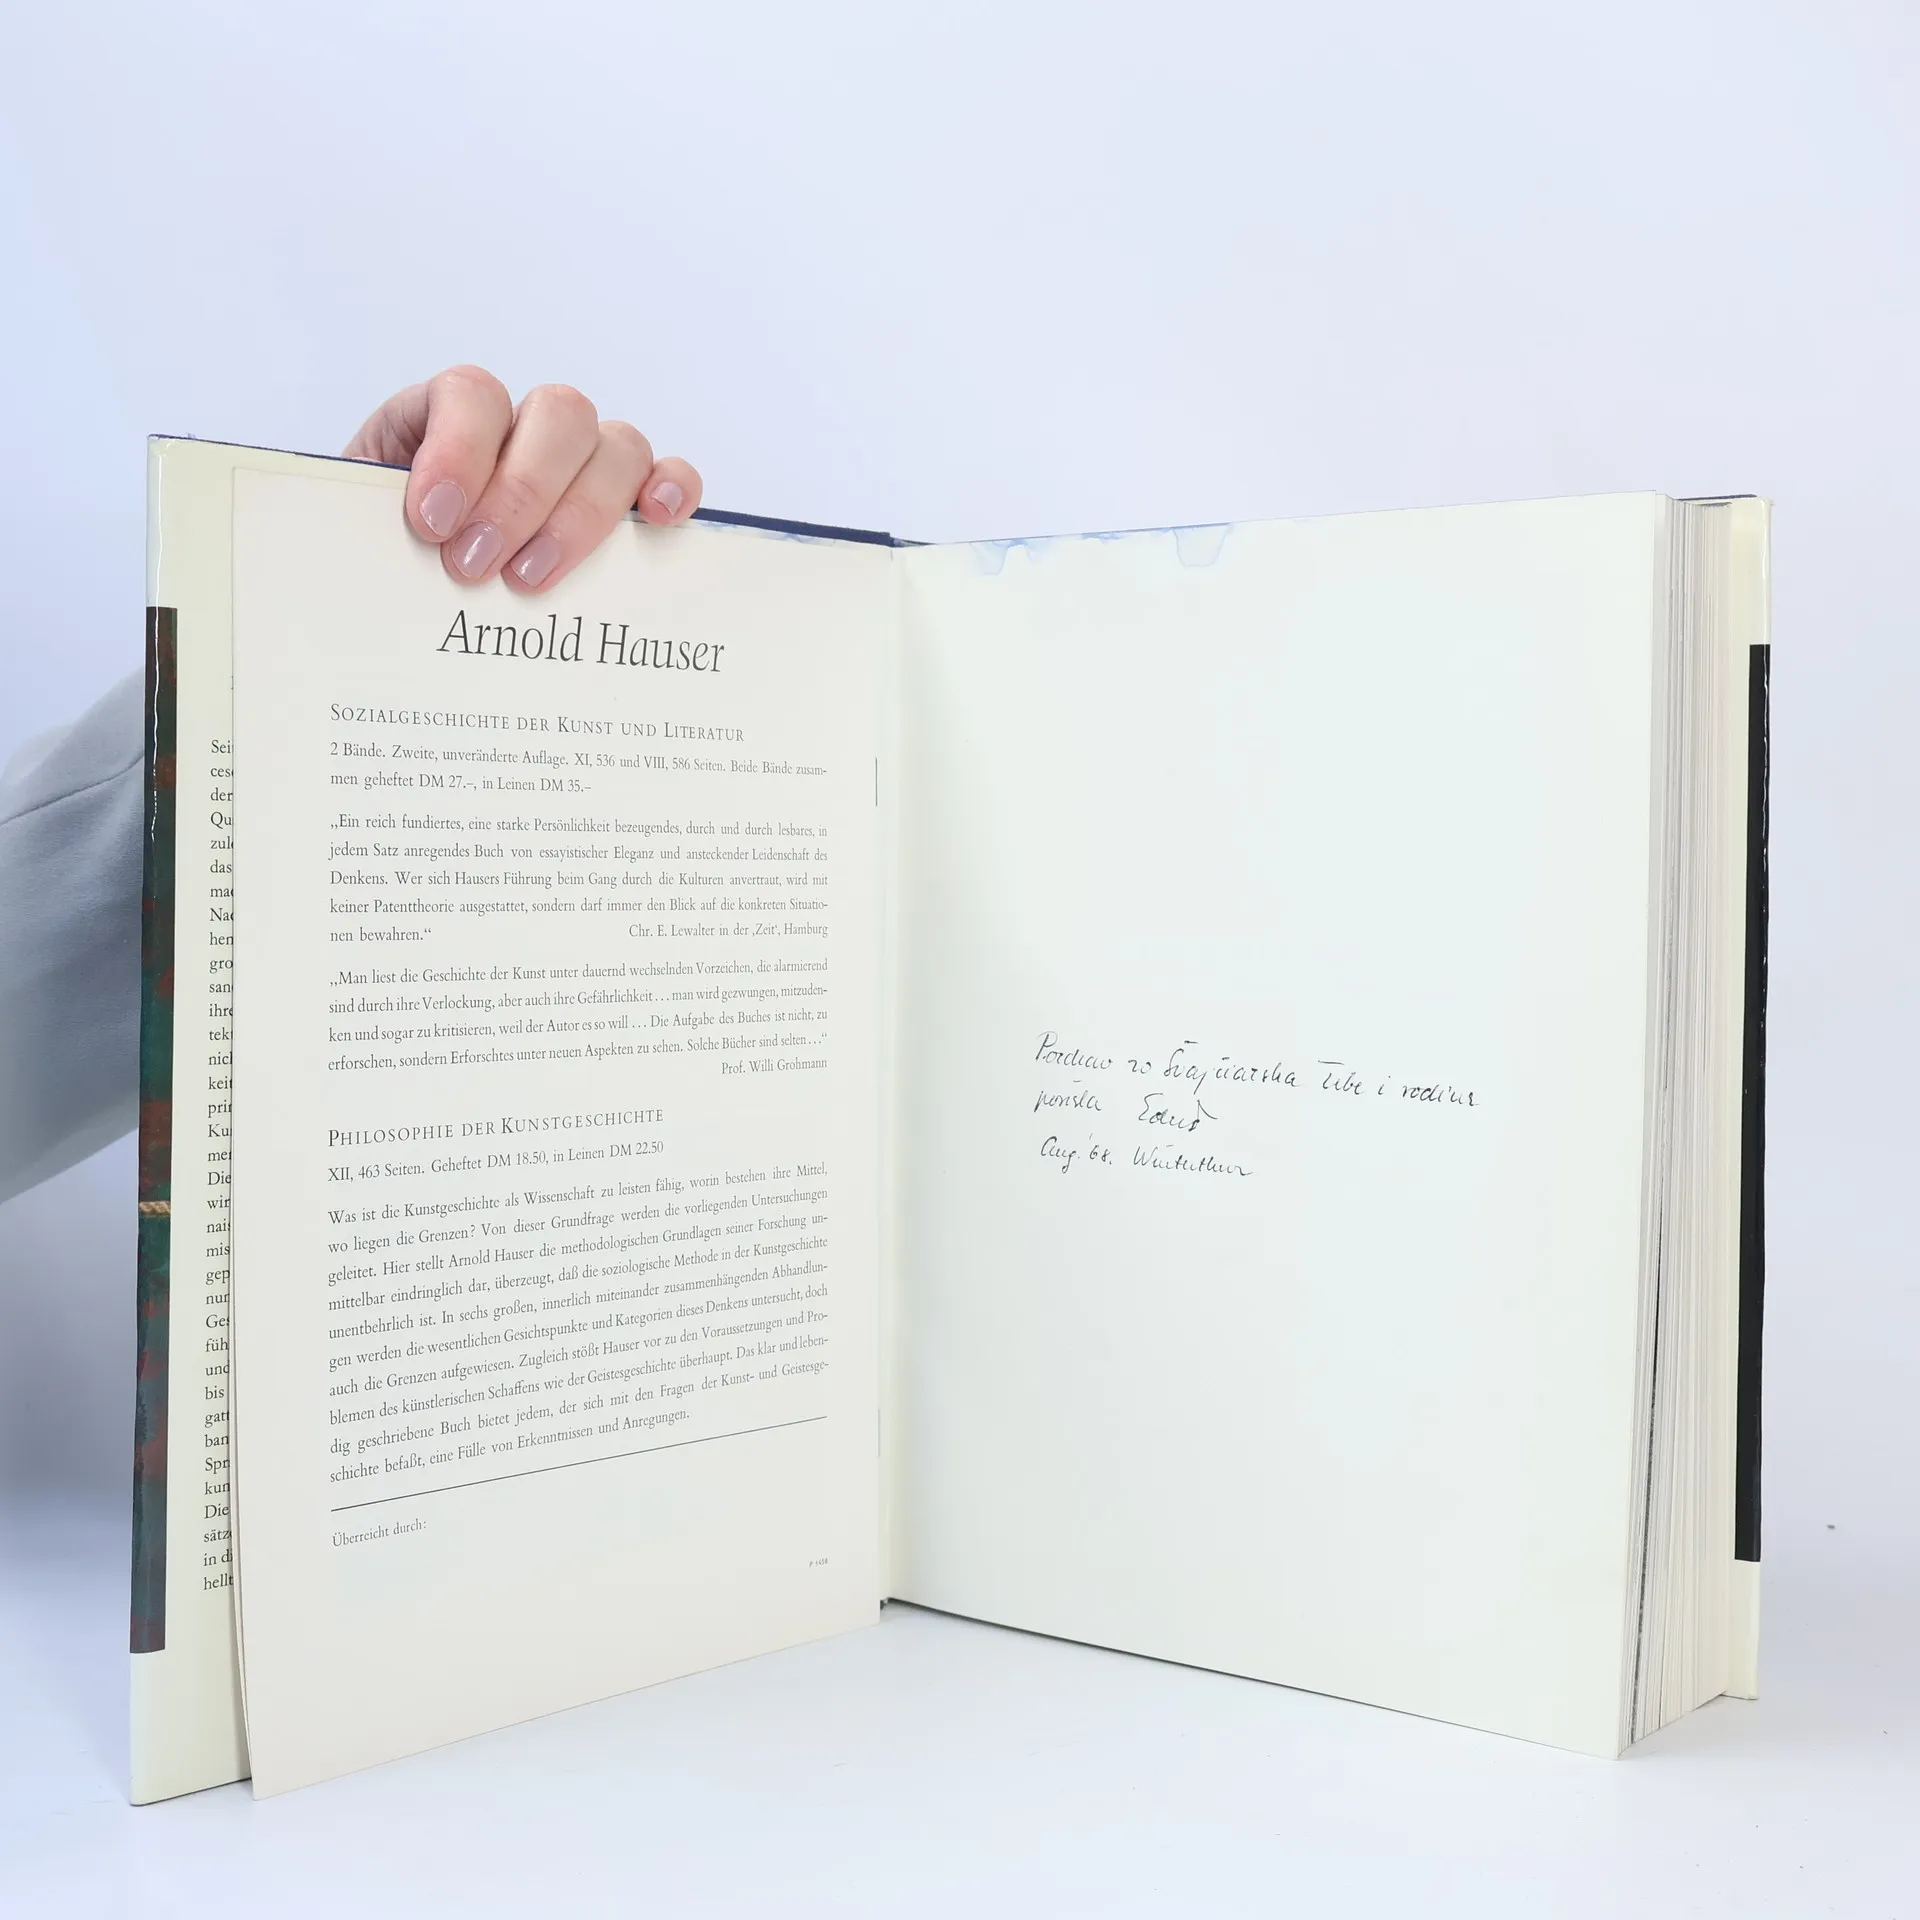 Arnold Hauser
SOZIALGESCHICHTE DER KUNST UND LITERATUR
2 Bände. Zweite, unveränderte Auflage. XI, 536 und VIII, 586 Seiten. Beide Bände zusam-
men geheftet DM 27.–, in Leinen DM 35.–
„Ein reich fundiertes, eine starke Persönlichkeit bezeugendes, durch und durch lesbares, in
jedem Satz anregendes Buch von essayistischer Eleganz und ansteckender Leidenschaft des
Denkens. Wer sich Hausers Führung beim Gang durch die Kulturen anvertraut, wird mit
keiner Patenttheorie ausgestattet, sondern darf immer den Blick auf die konkreten Situatio-
nen bewahren.“ Chr. E. Lewalter in der ‚Zeit‘, Hamburg
„Man liest die Geschichte der Kunst unter dauernd wechselnden Vorzeichen, die alarmierend
sind durch ihre Verlockung, aber auch ihre Gefährlichkeit … man wird gezwungen, mitzuden-
ken und sogar zu kritisieren, weil der Autor es so will … Die Aufgabe des Buches ist nicht, zu
erforschen, sondern Erforschtes unter neuen Aspekten zu sehen. Solche Bücher sind selten …“
Prof. Willi Grohmann
PHILOSOPHIE DER KUNSTGESCHICHTE
XII, 463 Seiten. Geheftet DM 18.50, in Leinen DM 22.50
Was ist die Kunstgeschichte als Wissenschaft zu leisten fähig, worin bestehen ihre Mittel,
wo liegen die Grenzen? Von dieser Grundfrage werden die vorliegenden Untersuchungen
geleitet. Hier stellt Arnold Hauser die methodologischen Grundlagen seiner Forschung un-
mittelbar eindringlich dar, überzeugt, daß die soziologische Methode in der Kunstgeschichte
unentbehrlich ist. In sechs großen, innerlich miteinander zusammenhängenden Abhandlun-
gen werden die wesentlichen Gesichtspunkte und Kategorien dieses Denkens untersucht, doch
auch die Grenzen aufgewiesen. Zugleich stößt Hauser vor zu den Voraussetzungen und Pro-
blemen des künstlerischen Schaffens wie der Geistesgeschichte überhaupt. Das klar und leben-
dig geschriebene Buch bietet jedem, der sich mit den Fragen der Kunst- und Geistesge-
schichte befaßt, eine Fülle von Erkenntnissen und Anregungen.
Überreicht durch:
P 1458
Pozdrav zo Švajčiarska Tebe i rodine
posiela
Aug. '68. Winterthur